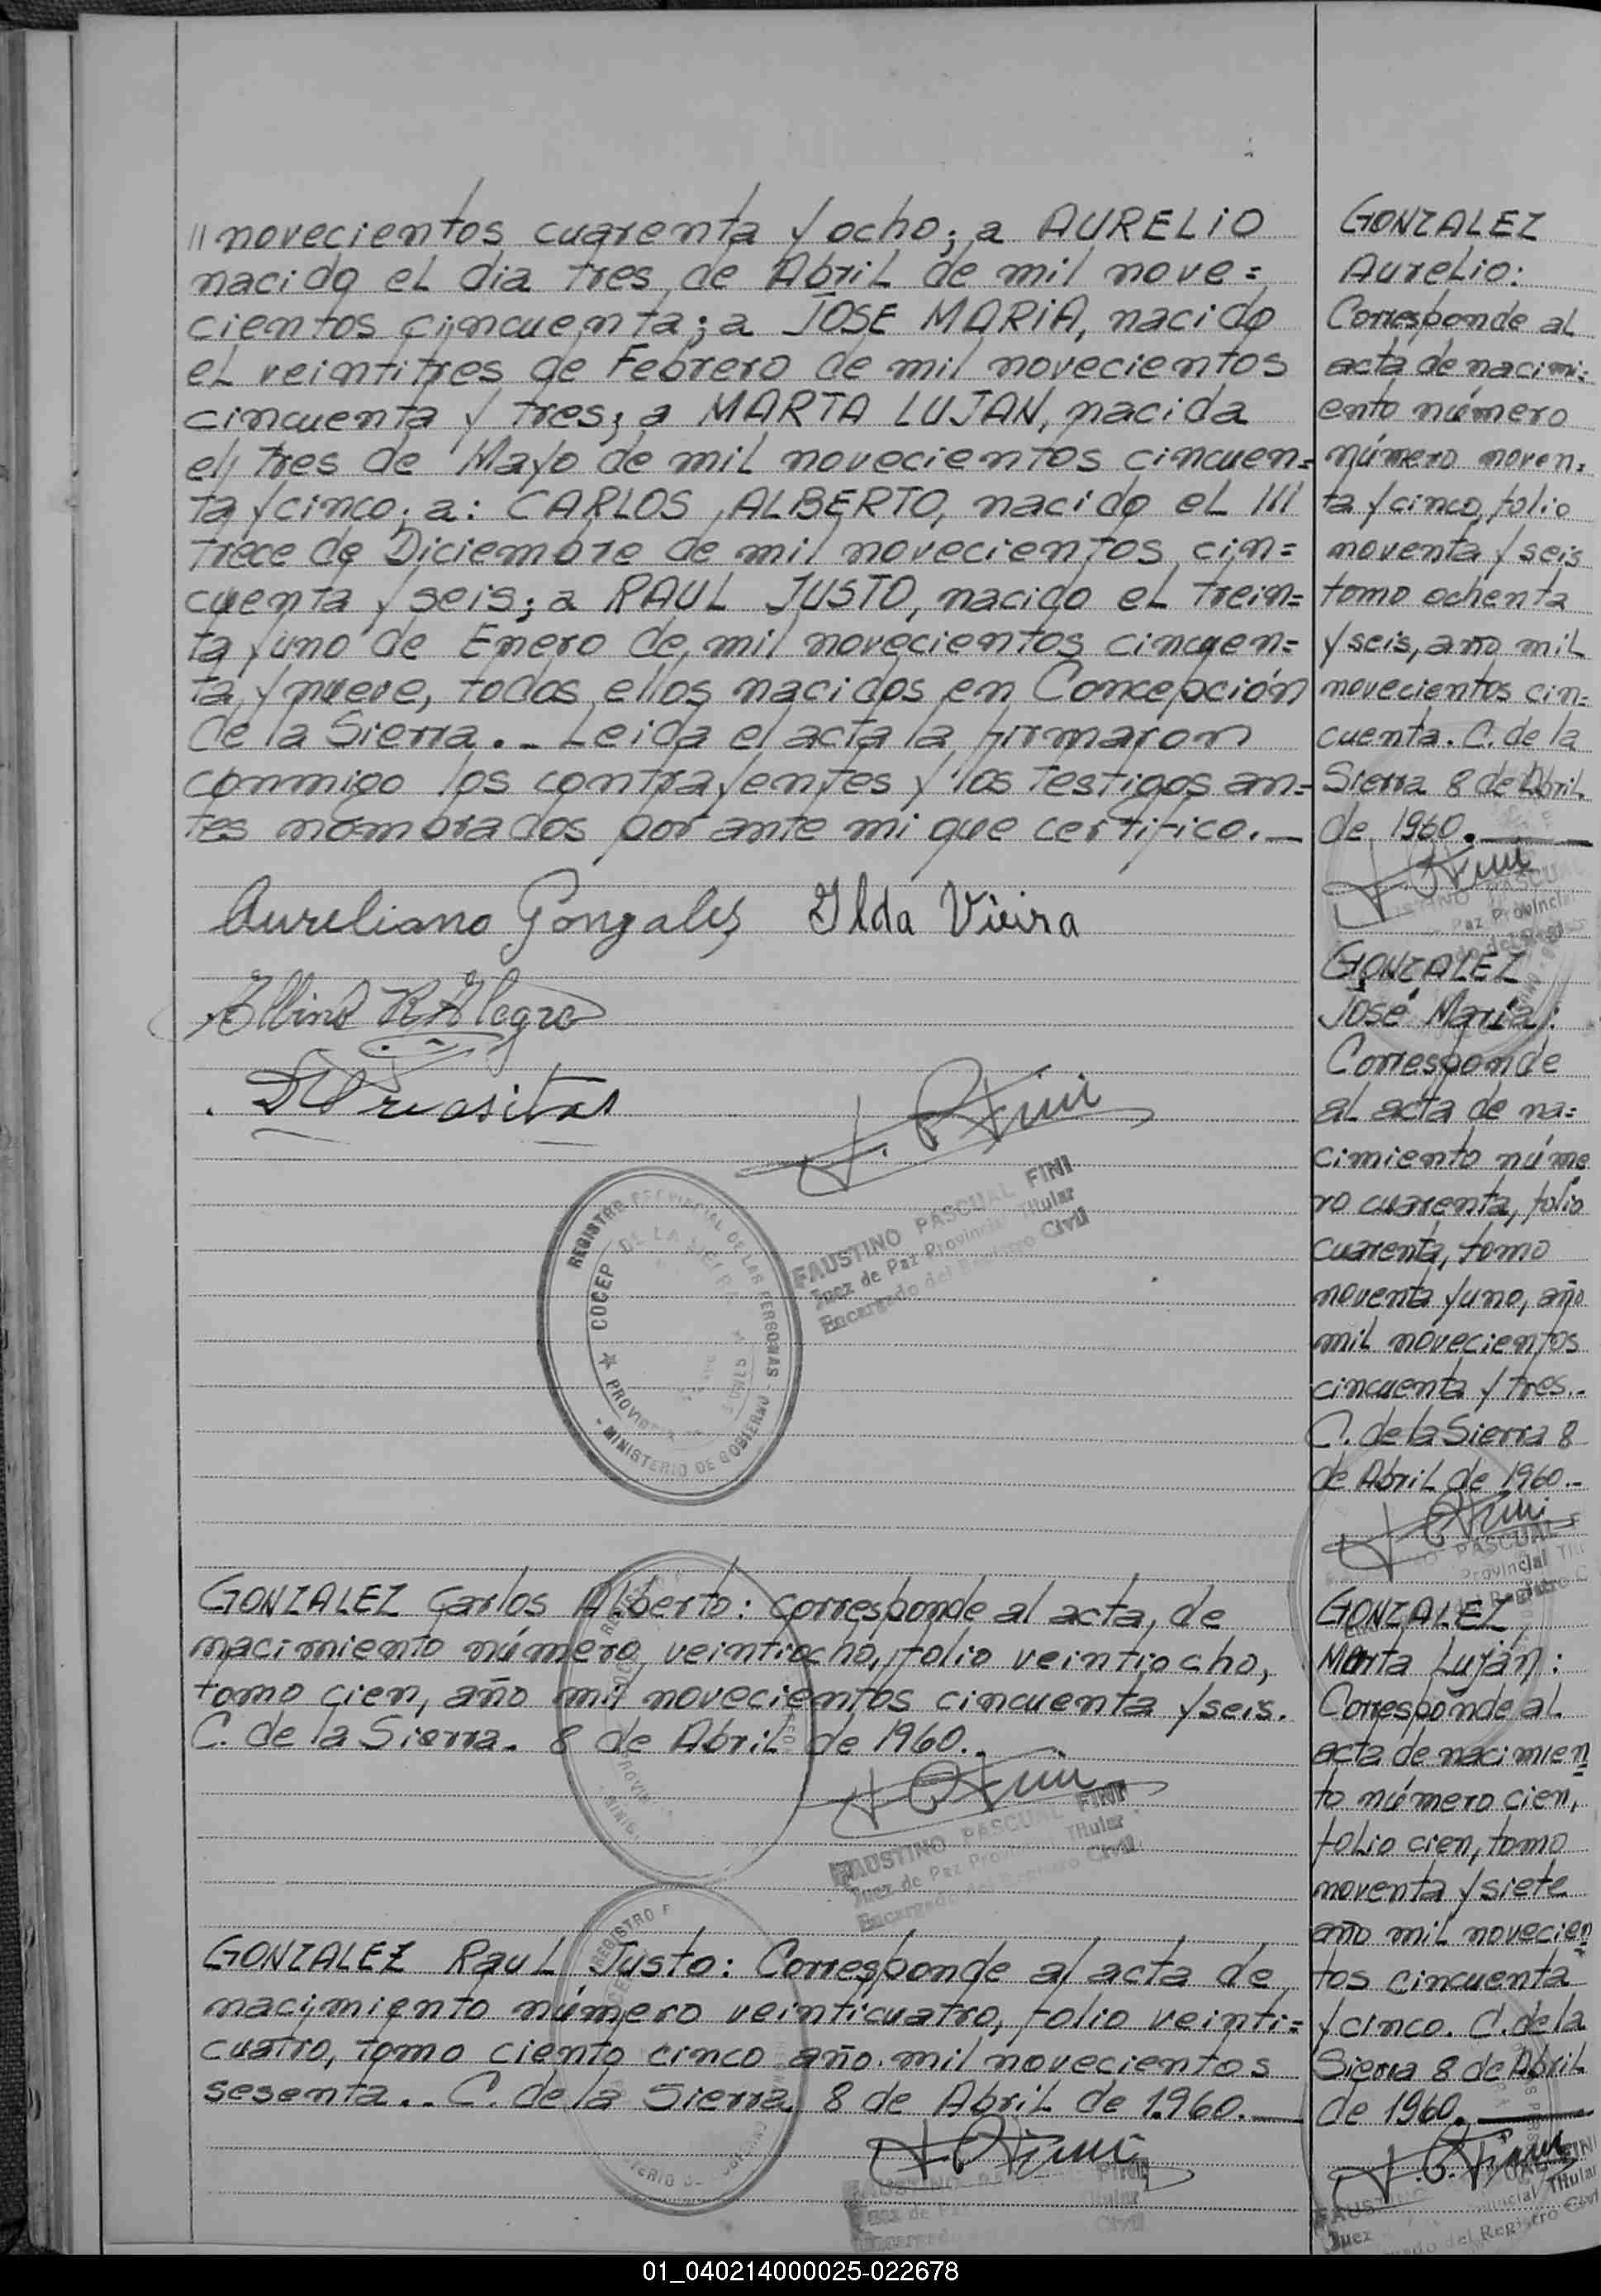 // novecientos cuarenta y ocho; a AURELIO
nacido el dia tres de Abril de mil nove=
cientos cincuenta; a JOSE MARIA, nacido
el veintitres de Febrero de mil novecientos
cincuenta y tres; a MARTA LUJAN, nacida
el tres de Mayo de mil novecientos cincuen=
ta y cinco; a: CARLOS ALBERTO, nacido el ///
trece de Diciembre de mil novecientos cin=
cuenta y seis; a RAUL JUSTO, nacido el trein=
ta y uno de Enero de mil novecientos cincuen=
ta y nueve, todos ellos nacidos en Concepción
de la Sierra._ Leida el acta la firmaron
conmigo los contrayentes y los testigos an=
tes nombrados por ante mi que certifico._
Aureliano Gonzales Ilda Vieira
Albino R Alegre
F. P. Fini
FAUSTINO PASCUAL FINI
Juez de Paz Provincial Titular
Encargado del Registro Civil
REGISTRO PROVINCIAL DE LAS PERSONAS
COCEP DE LA SIERRA
★ PROVINCIA
MINISTERIO DE GOBIERNO
GONZALEZ Carlos Alberto: Corresponde al acta, de
nacimiento número veintiocho, folio veintiocho,
tomo cien, año mil novecientos cincuenta y seis.
C. de la Sierra. 8 de Abril de 1960._
F. P. Fini
FAUSTINO PASCUAL FINI
Juez de Paz Provincial Titular
Encargado del Registro Civil
GONZALEZ Raul Justo: Corresponde al acta de
nacimiento número veinticuatro, folio veinti=
cuatro, tomo ciento cinco año mil novecientos
sesenta._ C. de la Sierra 8 de Abril de 1.960._
F. P. Fini
GONZALEZ
Aurelio:
Corresponde al
acta de nacimi=
ento número
número noven=
ta y cinco, folio
noventa y seis
tomo ochenta
y seis, año mil
novecientos cin=
cuenta. C. de la
Sierra 8 de Abril
de 1960._
F. P. Fini
GONZALEZ
José María:
Corresponde
al acta de na=
cimiento núme
ro cuarenta, folio
cuarenta, tomo
noventa y uno, año
mil novecientos
cincuenta y tres._
C. de la Sierra 8
de Abril de 1960._
F. P. Fini
GONZALEZ
Marta Luján:
Corresponde al
acta de nacimien
to número cien,
folio cien, tomo
noventa y siete
año mil novecien
tos cincuenta
y cinco. C. de la
Sierra 8 de Abril
de 1960._
F. P. Fini
01_040214000025-022678